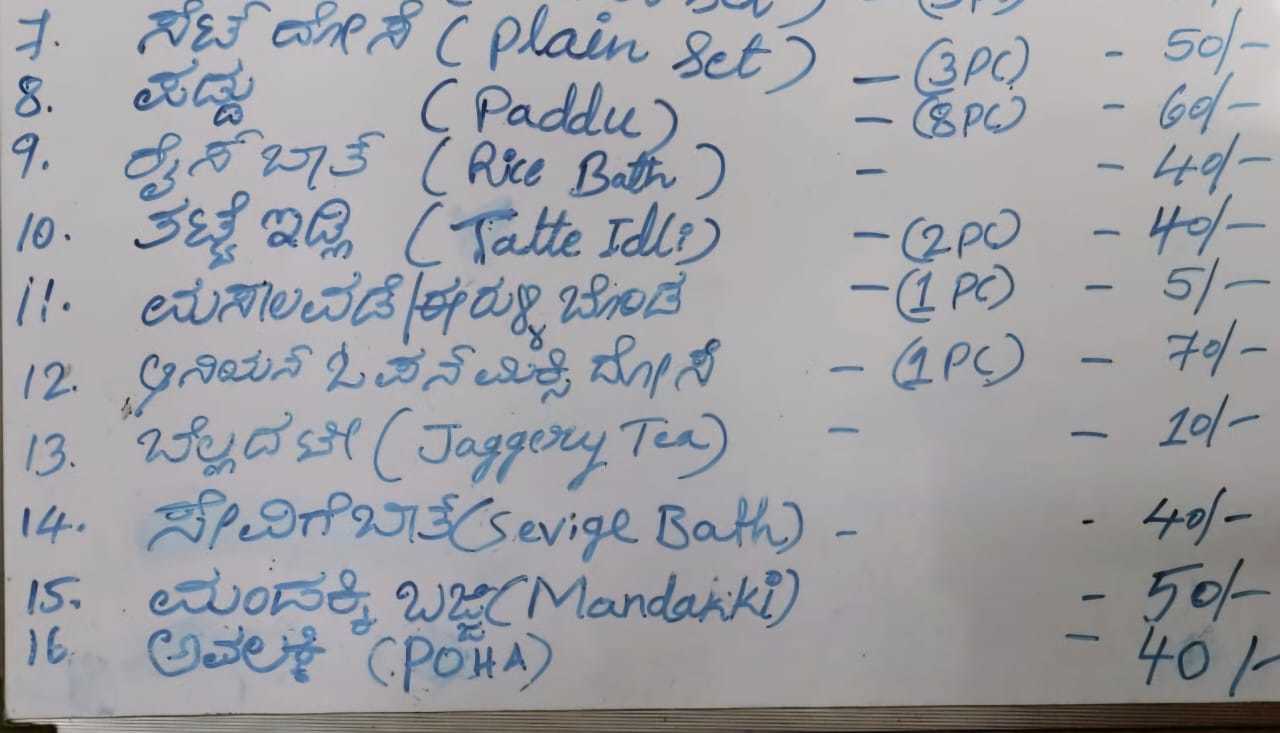 7. ಸೆಟ್ ದೋಸೆ (Plain Set) - (3PC) - 50/-
8. ಪಡ್ಡು (Paddu) - (8PC) - 60/-
9. ರೈಸ್ ಬಾತ್ (Rice Bath) - - 40/-
10. ತಟ್ಟೆ ಇಡ್ಲಿ (Tatte Idli) - (2PC) - 40/-
11. ಮಸಾಲವಡೆ/ಈರುಳ್ಳಿ ಬೋಂಡ - (1 PC) - 5/-
12. ಆನಿಯನ್ ಓಪನ್ ಮಿಕ್ಸಿ ದೋಸೆ - (1PC) - 70/-
13. ಬೆಲ್ಲದ ಟೀ (Jaggery Tea) - - 10/-
14. ಸೇವಿಗೆ ಬಾತ್ (Sevige Bath) - - 40/-
15. ಮಂಡಕ್ಕಿ ಬಜ್ಜಿ (Mandakki) - 50/-
16. ಅವಲಕ್ಕಿ (POHA) - 40/-